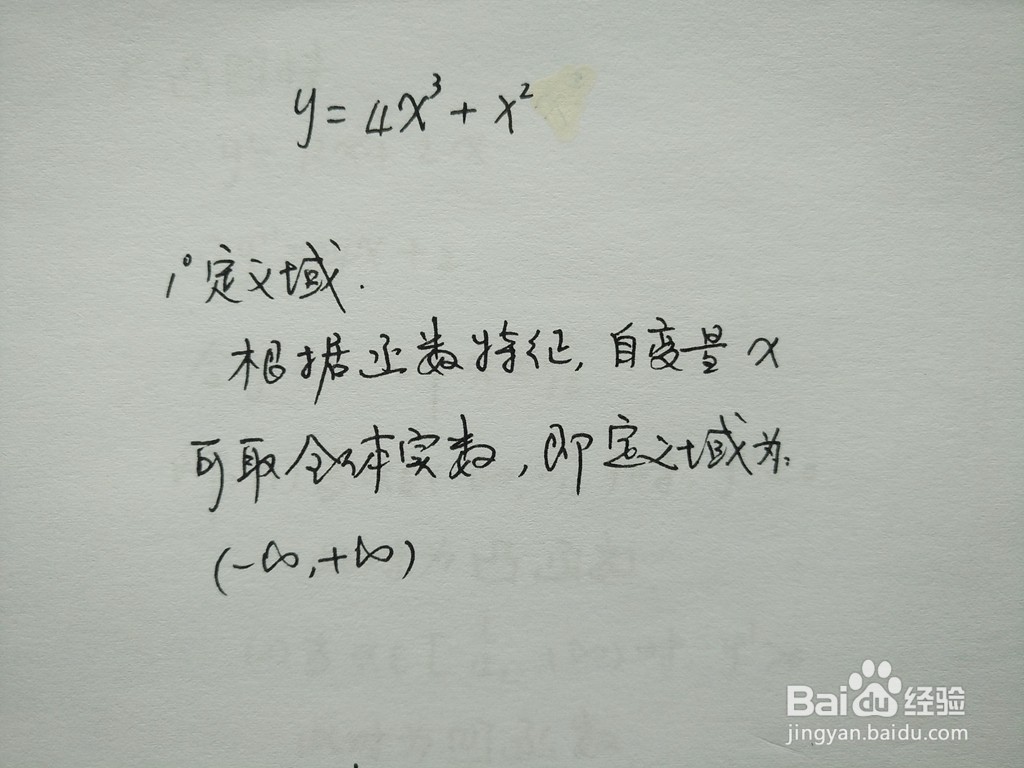 y = 4x³ + x²
1° 定义域.
根据函数特征, 自变量 x
可取全体实数, 即定义域为:
(-∞, +∞)
Bai du 经验
jingyan.baidu.com